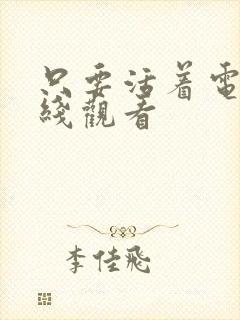 只要活着電
綫觀看
李佳飛